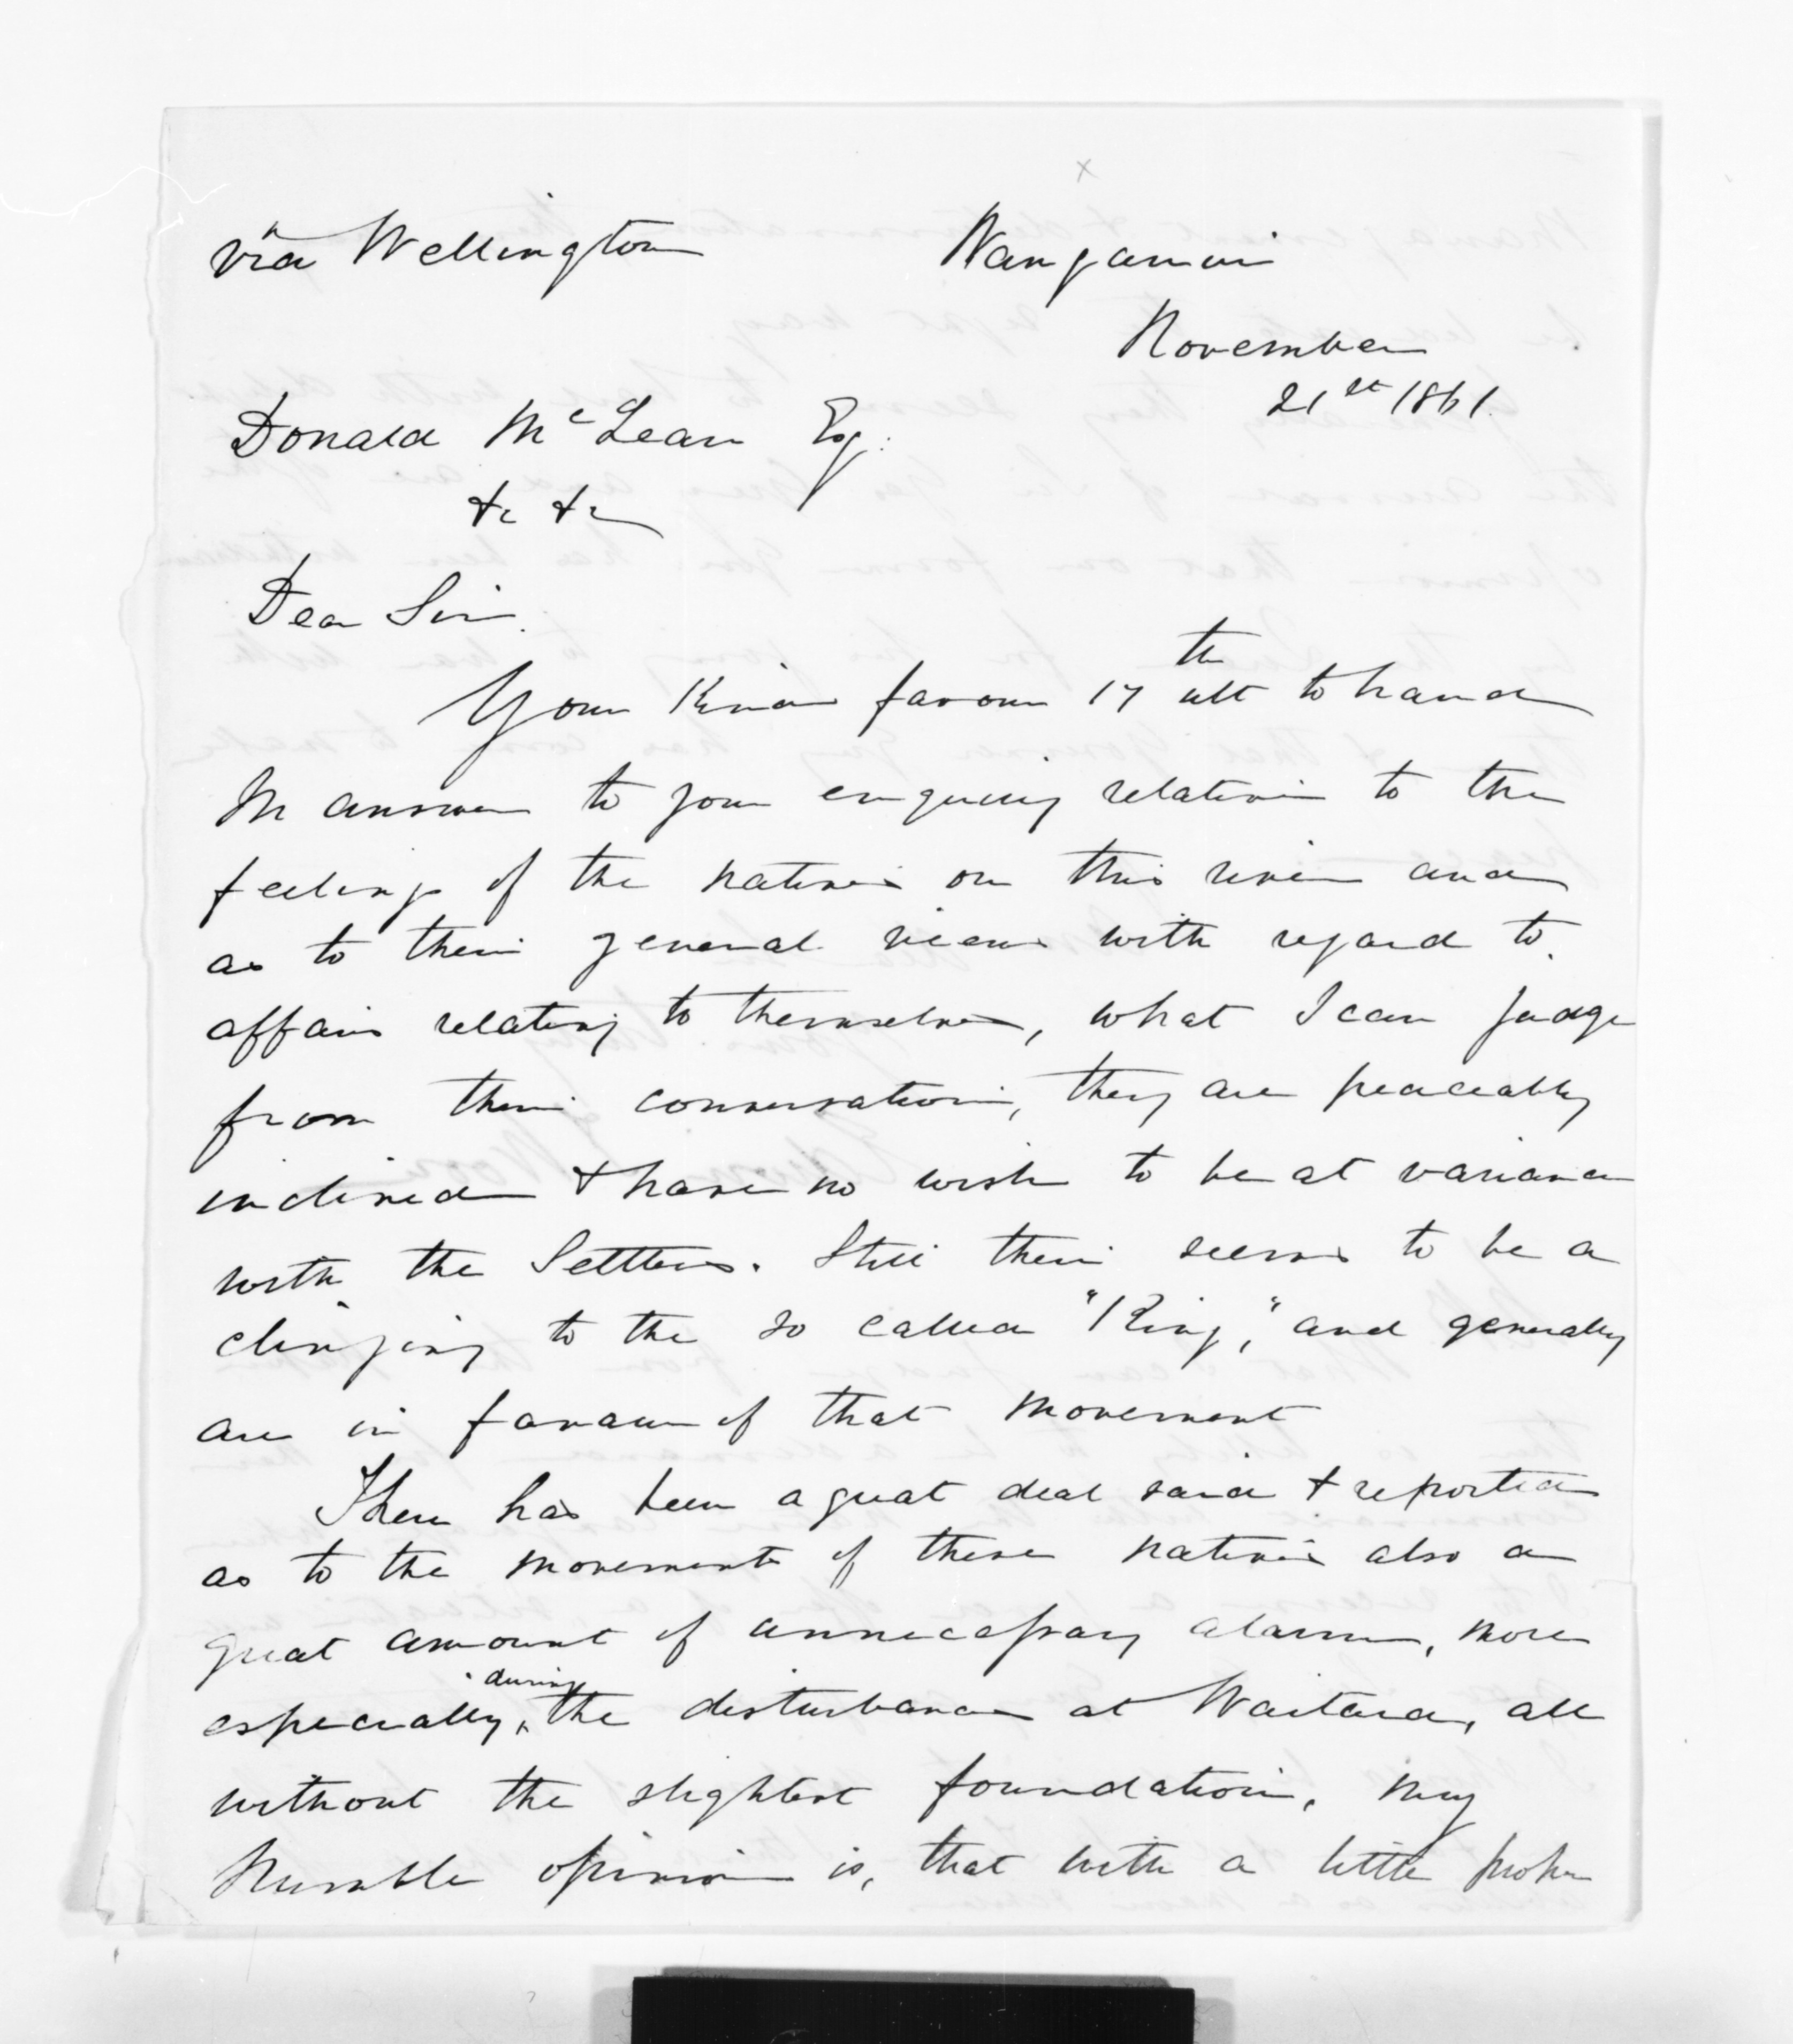 via Wellington
Wanganui
November
21st 1861.
Donald McLean Esq:
&c &c
Dear Sir.
Your kind favour 17th ult to hand
In answer to your enquiry relative to the
feelings of the natives on this river and
as to their general views with regard to
affairs relating to themselves, what I can judge
from their conversation, they are peaceably
inclined & have no wish to be at variance
with the Settlers. Still there seems to be a
clinging to the so called "King", and generally
are in favour of that movement
There has been a great deal said & reported
as to the movements of these natives also a
great amount of unnecessary alarm, more
especially, during the disturbance at Waitara, all
without the slightest foundation, my
humble opinion is, that with a little proper